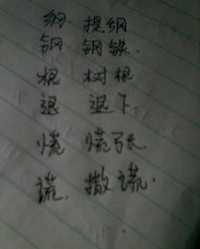 纲 提纲
钢 钢铁.
根 树根
退 退下.
慌 慌张.
谎. 撒谎.